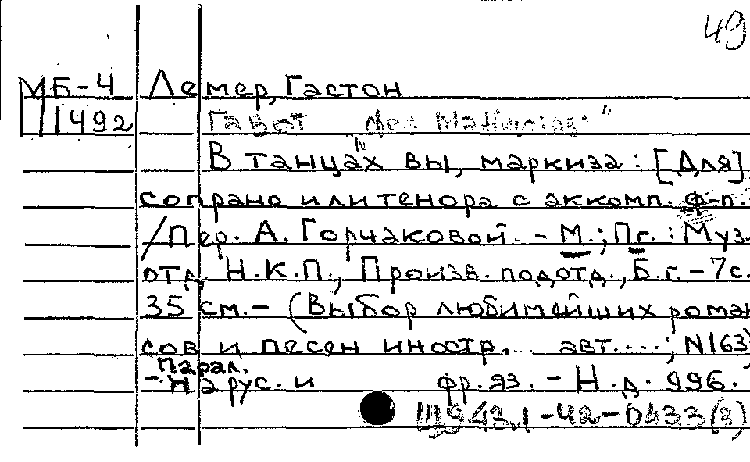 49
МБ-4 Лемер, Гастон
1492 Гавот
В танцах вы, маркиза: [Для]
сопрано или тенора с аккомп. ф-п.
/Пер. А. Горчаковой. - М.; Пг.: Муз.
отд. Н.К.П., Произв. подотд., Б.г. - 7с.
35 см. - (Выбор любимейших роман
сов и песен иностр. авт....; N163)
Парал.
- На рус. и фр. яз. - Н.д. 996.
Щ943.1-42-0433(3)